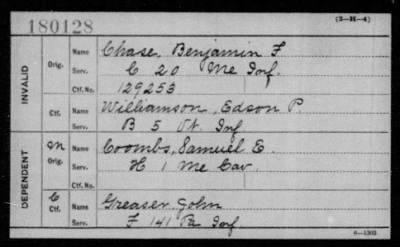 180128
(3-H-4)
INVALID
Orig. Name Chase, Benjamin F.
Serv. C 20 Me Inf.
Ctf. No. 129253
Ctf. Name Williamson, Edson P.
Serv. B 5 Vt. Inf
DEPENDENT
M Orig. Name Coombs, Samuel E.
Serv. H 1 Me Cav.
Ctf. No.
C Ctf. Name Greaser, John
Serv. F 141 Pa Inf.